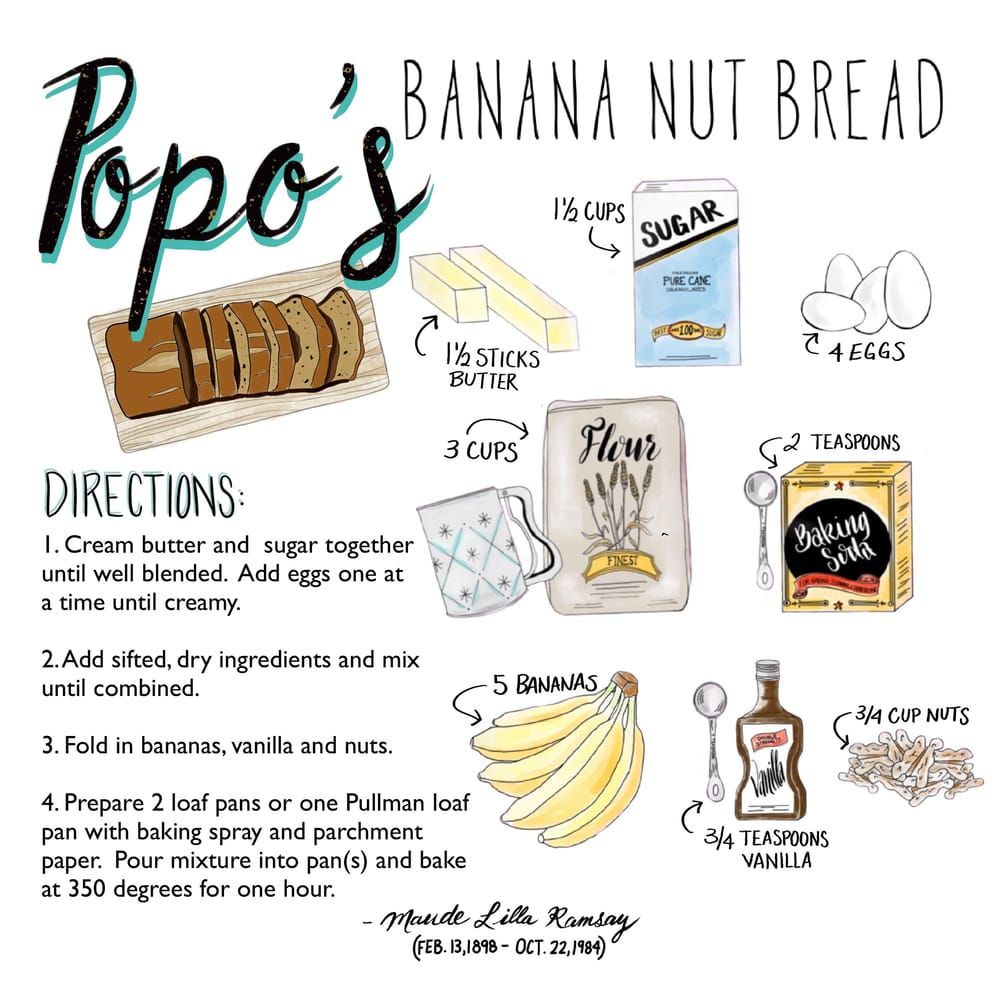 Popo's
BANANA NUT BREAD
1½ CUPS
SUGAR
PREMIUM
PURE CANE
GRANULATED
BEST
100
SUGAR
1½ STICKS
BUTTER
4 EGGS
3 CUPS
Flour
FINEST
2 TEASPOONS
Baking
Soda
DIRECTIONS:
1. Cream butter and sugar together
until well blended. Add eggs one at
a time until creamy.
2. Add sifted, dry ingredients and mix
until combined.
3. Fold in bananas, vanilla and nuts.
4. Prepare 2 loaf pans or one Pullman loaf
pan with baking spray and parchment
paper. Pour mixture into pan(s) and bake
at 350 degrees for one hour.
5 BANANAS
DOUBLE
STRENGTH
Vanilla
3/4 TEASPOONS
VANILLA
3/4 CUP NUTS
- Maude Lilla Ramsay
(FEB. 13, 1898 - OCT. 22, 1984)